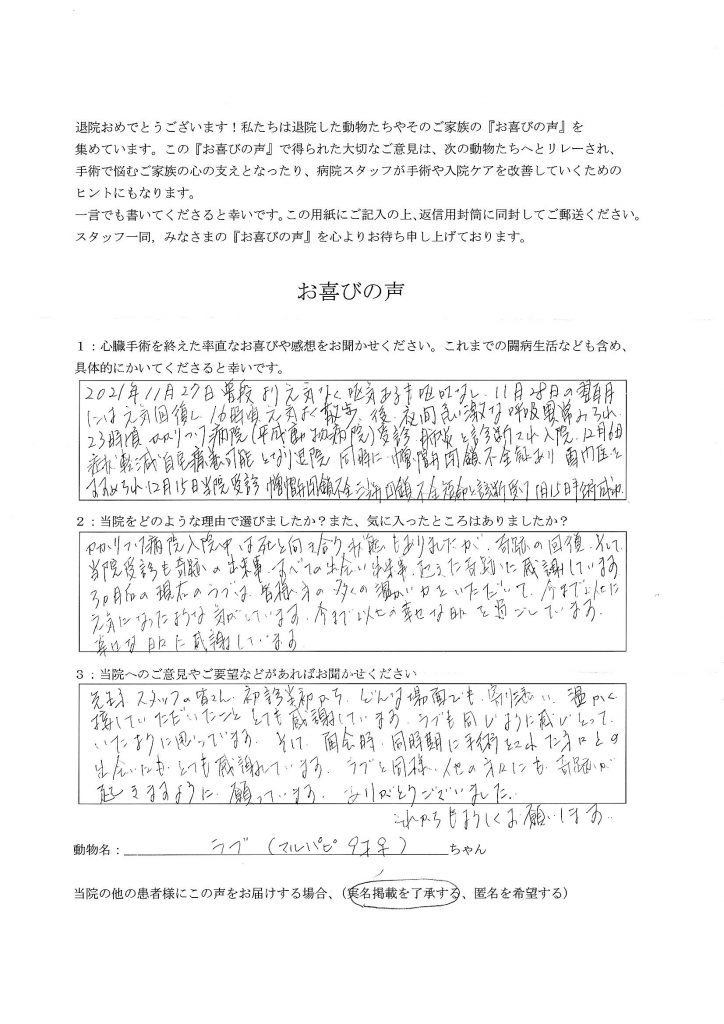 退院おめでとうございます！私たちは退院した動物たちやそのご家族の『お喜びの声』を
集めています。この『お喜びの声』で得られた大切なご意見は、次の動物たちへとリレーされ、
手術で悩むご家族の心の支えとなったり、病院スタッフが手術や入院ケアを改善していくための
ヒントにもなります。
一言でも書いてくださると幸いです。この用紙にご記入の上、返信用封筒に同封してご郵送ください。
スタッフ一同，みなさまの『お喜びの声』を心よりお待ち申し上げております。
お喜びの声
１：心臓手術を終えた率直なお喜びや感想をお聞かせください。これまでの闘病生活なども含め、
具体的にかいてくださると幸いです。
2021年11月27日 普段より元気なく 吐気あるも嘔吐なし. 11月28日の翌朝
には元気回復し、16時頃元気よく散歩. 後. 夜間 激な呼吸異常みられ.
23時頃かかりつけ病院(平成動物病院)受診 肺炎と診断され入院. 12月6日
症状軽減 自宅療養可能となり退院 同時に僧帽弁閉鎖不全症あり 専門医を
すすめられ12月15日当院受診 僧帽弁閉鎖不全 三尖弁閉鎖不全 と診断受け 1月15日手術成功.
２：当院をどのような理由で選びましたか？また、気に入ったところはありましたか？
かかりつけ病院入院中は死と向き合う状態もありましたが、奇跡の回復. そして
当院受診も奇跡の出来事. すべての出会い 出来事. 起きた奇跡に感謝しています
30日後の現在のラブは. 皆様方の多くの温かい力をいただいて. 今まで以上に
元気になったような気がしています. 今まで以上の幸せな日々を過ごしています.
幸せな日々に感謝しています.
３：当院へのご意見やご要望などがあればお聞かせください
先生方 スタッフの皆さん. 初診当初から. どんな場面でも. 寄り添い. 温かく
接していただいたこと とても感謝しています. ラブも同じように感じとって
いたように思っています. そして. 面会時. 同時期に手術をされた方々との
出会いにも. とても感謝しています. ラブと同様. 他の方々にも. 奇跡が
起きますように. 願っています. ありがとうございました.
これからもよろしくお願いします.
動物名：ラブ (マルパピ 9才♀)ちゃん
当院の他の患者様にこの声をお届けする場合、（実名掲載を了承する、匿名を希望する）